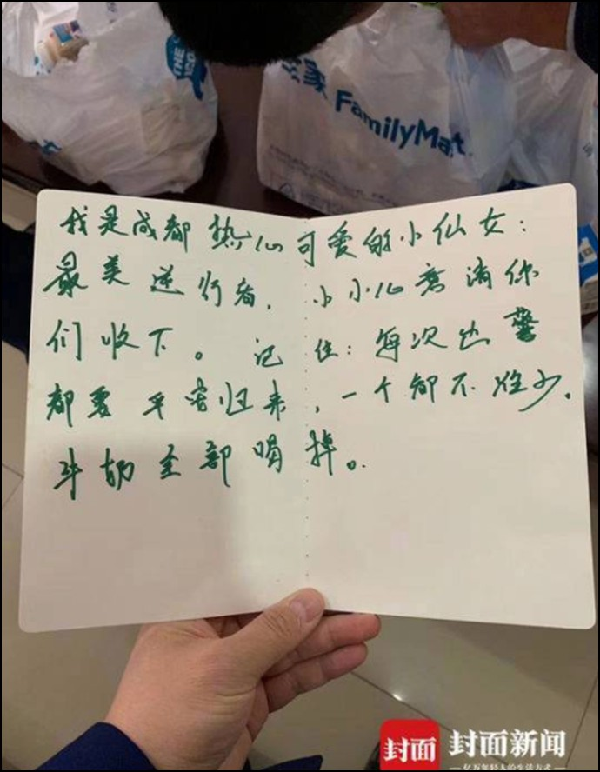 FamilyMart
我是成都热心可爱的小仙女:
最美逆行者，小小心意请你
们收下。记住:每次出警
都要平安归来，一个都不准少，
牛奶全部喝掉。
封面 封面新闻
亿万年轻人的生活方式